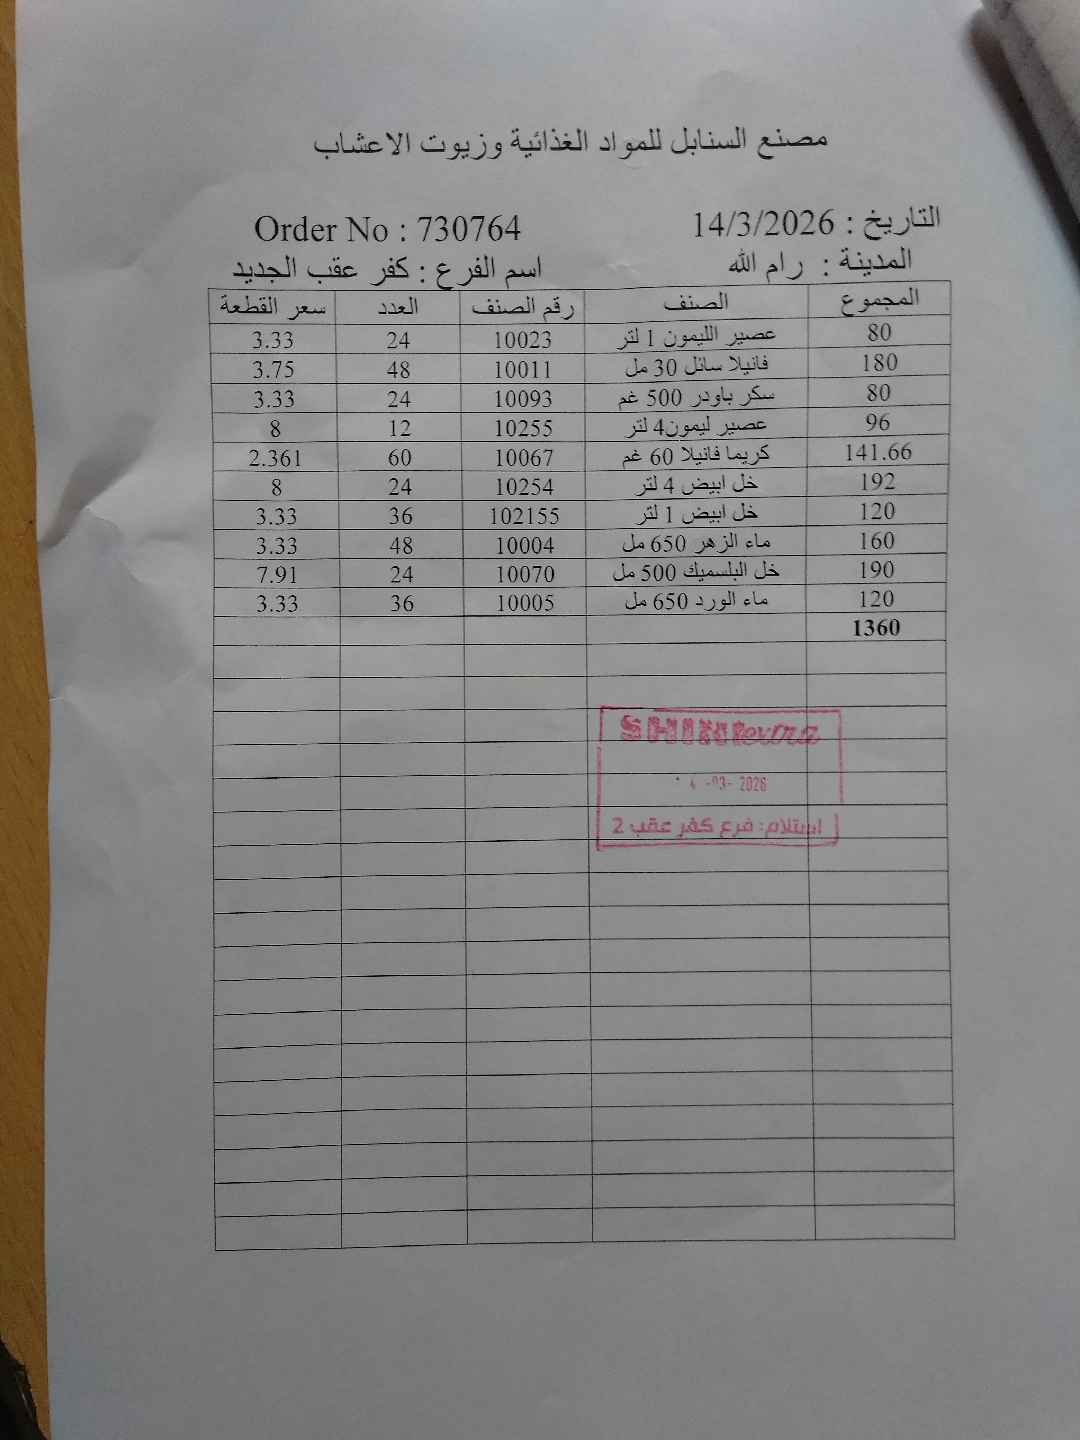 مصنع السنابل للمواد الغذائية وزيوت الاعشاب
التاريخ : 14/3/2026 Order No : 730764
المدينة : رام الله اسم الفرع : كفر عقب الجديد
المجموع الصنف رقم الصنف العدد سعر القطعة
80 عصير الليمون 1 لتر 10023 24 3.33
180 فانيلا سائل 30 مل 10011 48 3.75
80 سكر باودر 500 غم 10093 24 3.33
96 عصير ليمون4 لتر 10255 12 8
141.66 كريما فانيلا 60 غم 10067 60 2.361
192 خل ابيض 4 لتر 10254 24 8
120 خل ابيض 1 لتر 102155 36 3.33
160 ماء الزهر 650 مل 10004 48 3.33
190 خل البلسميك 500 مل 10070 24 7.91
120 ماء الورد 650 مل 10005 36 3.33
1360
SHINI extra
4 -03- 2026
استلام: فرع كفر عقب 2